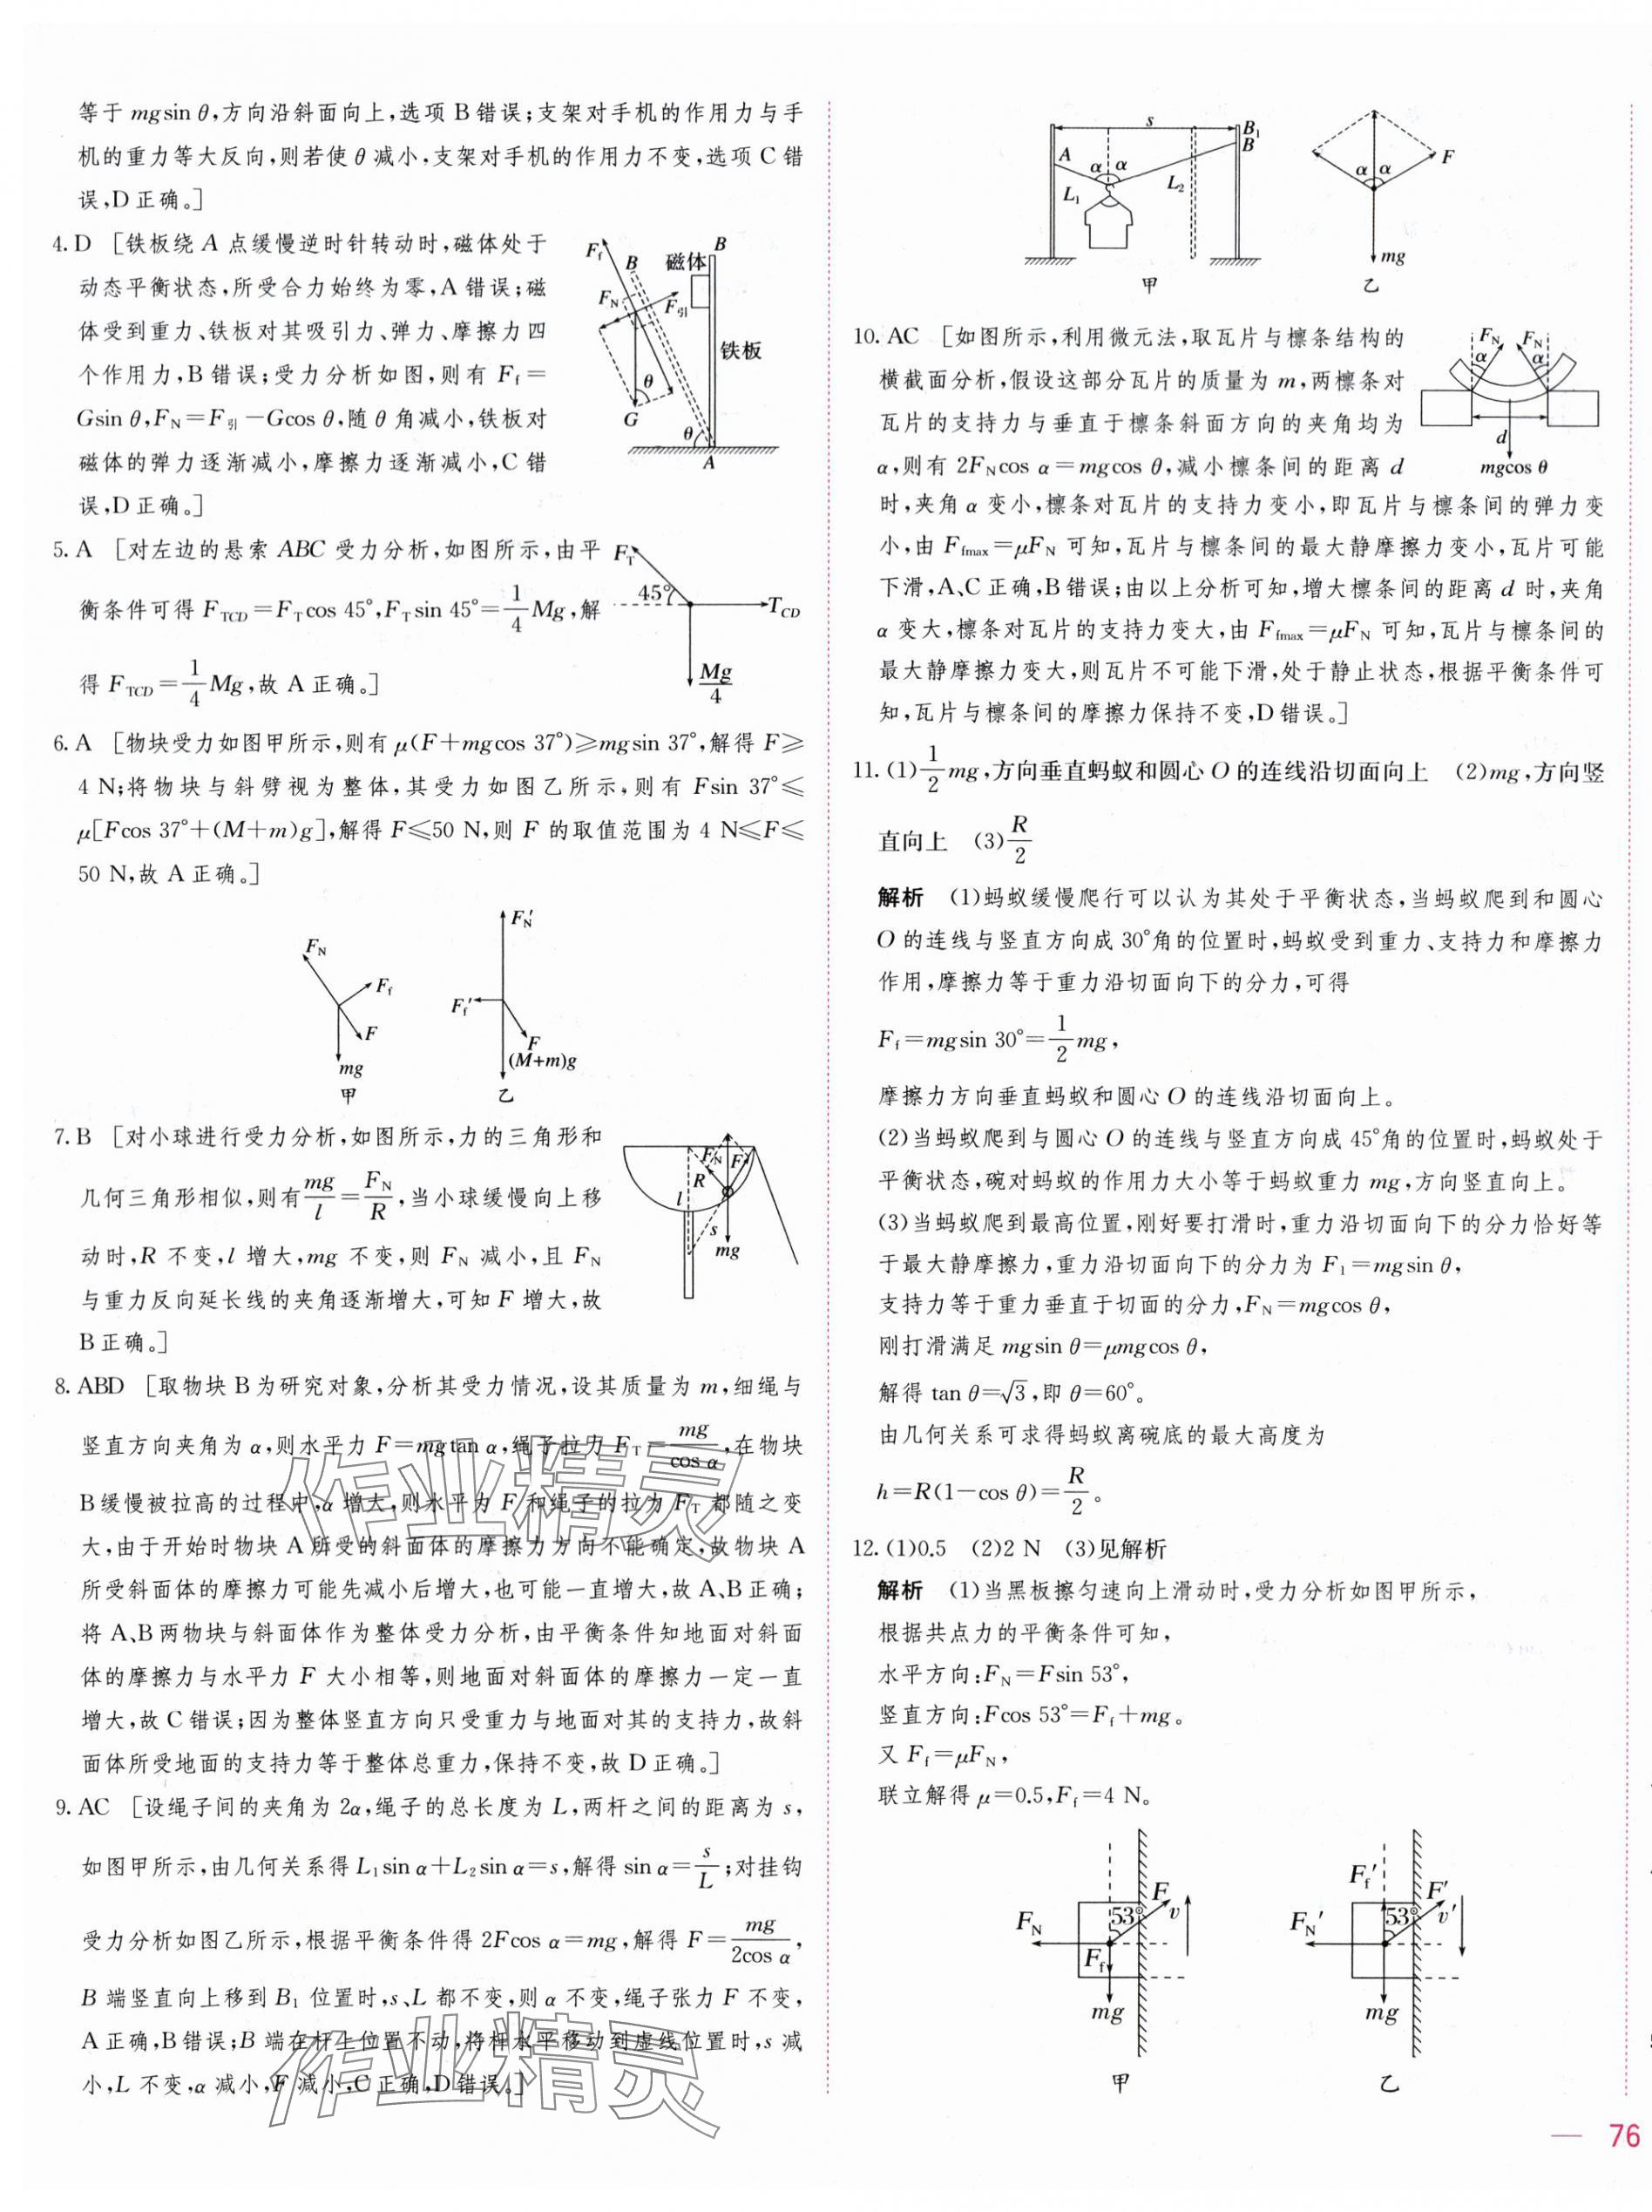 等于 mgsin θ,方向沿斜面向上,选项 B 错误;支架对手机的作用力与手
机的重力等大反向,则若使 θ 减小,支架对手机的作用力不变,选项 C 错
误,D 正确。]
4. D [铁板绕 A 点缓慢逆时针转动时,磁体处于
动态平衡状态,所受合力始终为零,A 错误;磁
体受到重力、铁板对其吸引力、弹力、摩擦力四
个作用力,B 错误;受力分析如图,则有 Ff=
Gsin θ,FN=F引-Gcos θ,随 θ 角减小,铁板对
磁体的弹力逐渐减小,摩擦力逐渐减小,C 错
误,D 正确。]
Ff
B
磁体
B
FN
F引
铁板
θ
G
θ
A
5. A [对左边的悬索 ABC 受力分析,如图所示,由平
衡条件可得 FTCD=FTcos 45°,FTsin 45°=1/4Mg,解
得 FTCD=1/4Mg,故 A 正确。]
FT
45°
TCD
Mg/4
6. A [物块受力如图甲所示,则有 μ(F+mgcos 37°)≥mgsin 37°,解得 F≥
4 N;将物块与斜劈视为整体,其受力如图乙所示,则有 Fsin 37°≤
μ[Fcos 37°+(M+m)g],解得 F≤50 N,则 F 的取值范围为 4 N≤F≤
50 N,故 A 正确。]
FN
Ff
F
mg
甲
FN′
Ff′
F
(M+m)g
乙
7. B [对小球进行受力分析,如图所示,力的三角形和
几何三角形相似,则有mg/l=FN/R,当小球缓慢向上移
动时,R 不变,l 增大,mg 不变,则 FN 减小,且 FN
与重力反向延长线的夹角逐渐增大,可知 F 增大,故
B 正确。]
FN
F
R
l
s
mg
8. ABD [取物块 B 为研究对象,分析其受力情况,设其质量为 m,细绳与
竖直方向夹角为 α,则水平力 F=mgtan α,绳子拉力 FT=mg/cos α,在物块
B 缓慢被拉高的过程中,α 增大,则水平力 F 和绳子的拉力 FT 都随之变
大,由于开始时物块 A 所受的斜面体的摩擦力方向不能确定,故物块 A
所受斜面体的摩擦力可能先减小后增大,也可能一直增大,故 A、B 正确;
将 A、B 两物块与斜面体作为整体受力分析,由平衡条件知地面对斜面
体的摩擦力与水平力 F 大小相等,则地面对斜面体的摩擦力一定一直
增大,故 C 错误;因为整体竖直方向只受重力与地面对其的支持力,故斜
面体所受地面的支持力等于整体总重力,保持不变,故 D 正确。]
9. AC [设绳子间的夹角为 2α,绳子的总长度为 L,两杆之间的距离为 s,
如图甲所示,由几何关系得 L1sin α+L2sin α=s,解得 sin α=s/L;对挂钩
受力分析如图乙所示,根据平衡条件得 2Fcos α=mg,解得 F=mg/2cos α,
B 端竖直向上移到 B1 位置时,s、L 都不变,则 α 不变,绳子张力 F 不变,
A 正确,B 错误;B 端在杆上位置不动,将杆水平移动到虚线位置时,s 减
小,L 不变,α 减小,F 减小,C 正确,D 错误。]
作业精灵
作业精灵
s
B1
B
A
α
α
L1
L2
甲
F
α
α
mg
乙
10. AC [如图所示,利用微元法,取瓦片与檩条结构的
横截面分析,假设这部分瓦片的质量为 m,两檩条对
瓦片的支持力与垂直于檩条斜面方向的夹角均为
α,则有 2FNcos α=mgcos θ,减小檩条间的距离 d
时,夹角 α 变小,檩条对瓦片的支持力变小,即瓦片与檩条间的弹力变
小,由 Ffmax=μFN 可知,瓦片与檩条间的最大静摩擦力变小,瓦片可能
下滑,A、C 正确,B 错误;由以上分析可知,增大檩条间的距离 d 时,夹角
α 变大,檩条对瓦片的支持力变大,由 Ffmax=μFN 可知,瓦片与檩条间的
最大静摩擦力变大,则瓦片不可能下滑,处于静止状态,根据平衡条件可
知,瓦片与檩条间的摩擦力保持不变,D 错误。]
FN
FN
α
α
d
mgcos θ
11. (1)1/2mg,方向垂直蚂蚁和圆心 O 的连线沿切面向上 (2)mg,方向竖
直向上 (3)R/2
解析 (1)蚂蚁缓慢爬行可以认为其处于平衡状态,当蚂蚁爬到和圆心
O 的连线与竖直方向成 30°角的位置时,蚂蚁受到重力、支持力和摩擦力
作用,摩擦力等于重力沿切面向下的分力,可得
Ff=mgsin 30°=1/2mg,
摩擦力方向垂直蚂蚁和圆心 O 的连线沿切面向上。
(2)当蚂蚁爬到与圆心 O 的连线与竖直方向成 45°角的位置时,蚂蚁处于
平衡状态,碗对蚂蚁的作用力大小等于蚂蚁重力 mg,方向竖直向上。
(3)当蚂蚁爬到最高位置,刚好要打滑时,重力沿切面向下的分力恰好等
于最大静摩擦力,重力沿切面向下的分力为 F1=mgsin θ,
支持力等于重力垂直于切面的分力,FN=mgcos θ,
刚打滑满足 mgsin θ=μmgcos θ,
解得 tan θ=√3,即 θ=60°。
由几何关系可求得蚂蚁离碗底的最大高度为
h=R(1-cos θ)=R/2。
12. (1)0.5 (2)2 N (3)见解析
解析 (1)当黑板擦匀速向上滑动时,受力分析如图甲所示,
根据共点力的平衡条件可知,
水平方向:FN=Fsin 53°,
竖直方向:Fcos 53°=Ff+mg。
又 Ff=μFN,
联立解得 μ=0.5,Ff=4 N。
F
53°
v
FN
Ff
mg
甲
Ff′
F′
53°
v′
FN′
mg
乙
— 76